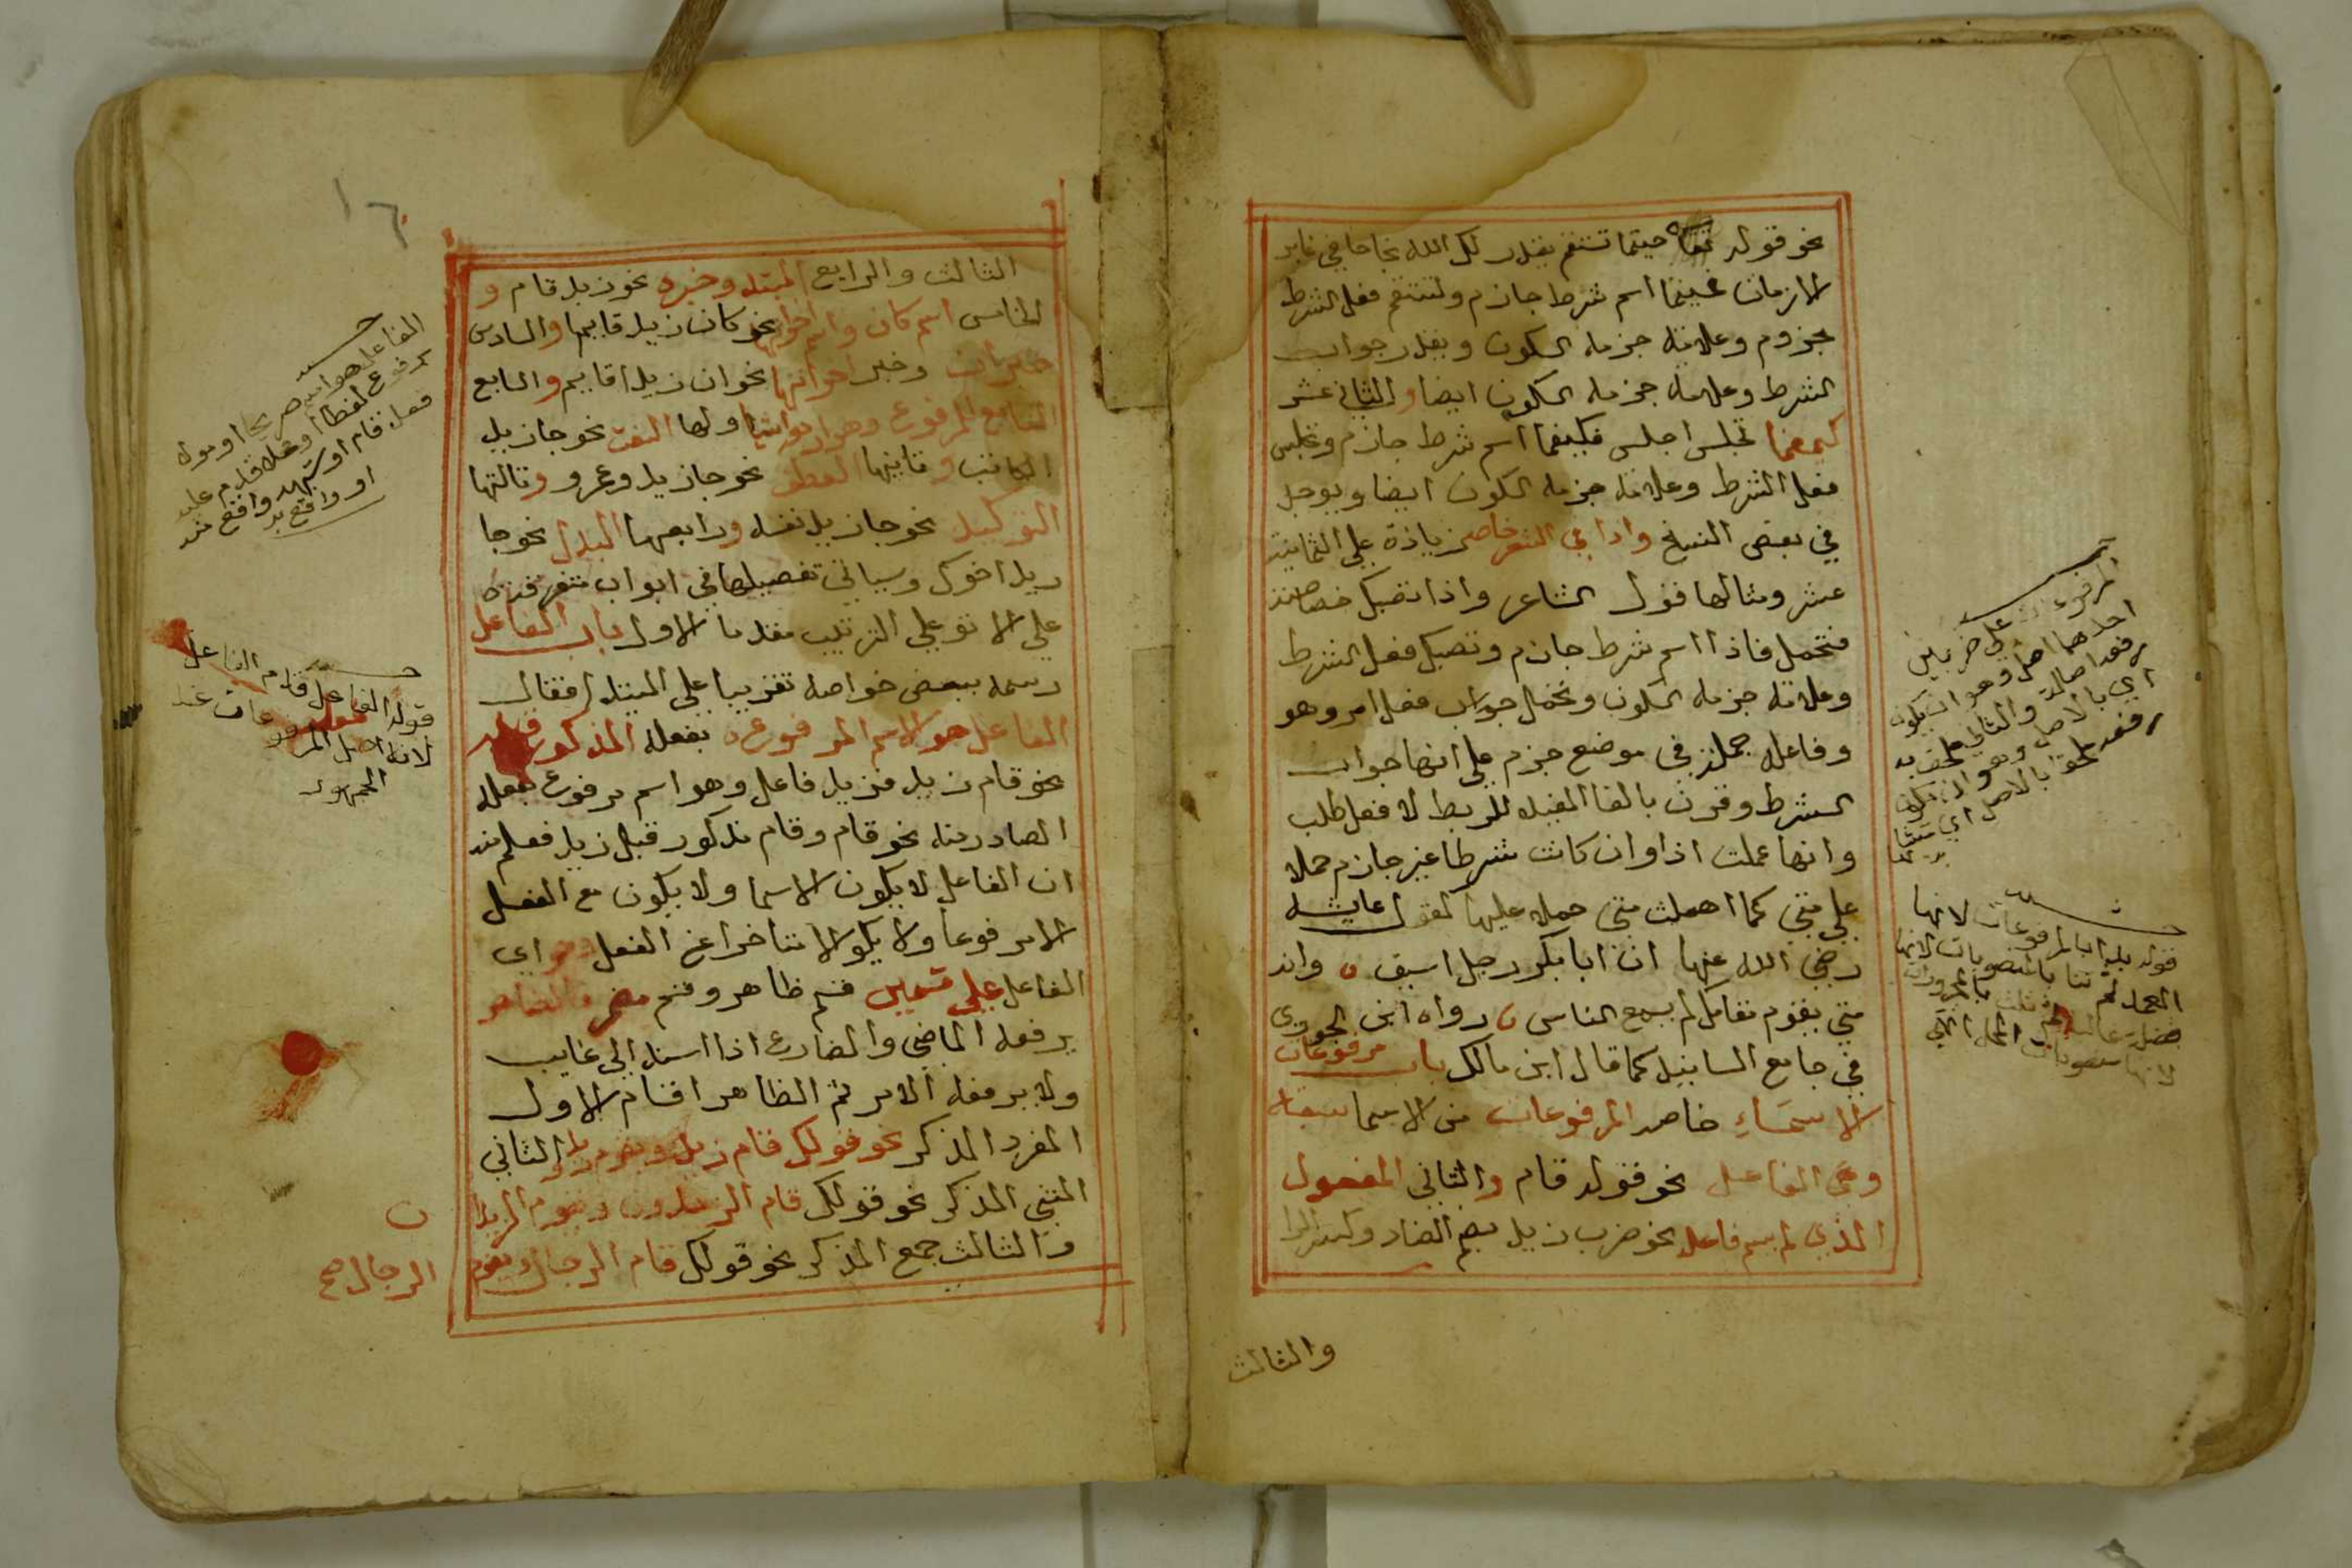 نحو قوله حيثما تستقم يقدر لك الله نجاحا في غابر
الازمان فحيثما اسم شرط جازم وتستقم فعل الشرط
مجزوم وعلامة جزمه السكون ويقدر جواب
الشرط وعلامة جزمه السكون ايضا والثاني عشر
كيفما تجلس اجلس فكيفما اسم شرط جازم وتجلس
فعل الشرط وعلامة جزمه السكون ايضا ويوجد
في بعض النسخ واذا في الشعر خاصة زيادة على الثمانية
عشر ومثالها قول الشاعر واذا تصبك خصاصة
فتحمل فاذا اسم شرط جازم وتصبك فعل الشرط
وعلامة جزمه السكون وتحمل جواب فعل امر وهو
وفاعله جملة في موضع جزم على انها جواب
الشرط وقرن بالفا المفيده للربط لا فعل طلب
وانها عملت اذا وان كانت شرطا غير جازم حملا
على متى كما اهملت متى حملا عليها كقول عايشه
رضي الله عنها ان ابا بكر رجل اسيف وانه
متى يقوم مقامك لم يسمع الناس رواه ابن الجوزي
في جامع المسانيد كما قال ابن مالك باب مرفوعات
الاسماء خاصه المرفوعات من الاسما سبعة
وهي الفاعل نحو قوله قام والثاني المفعول
الذي لم يسم فاعله نحو ضرب زيد بضم الضاد وكسر الرا
والثالث
المرفوعات على ضربين
احدهما اصل وهو ان يكون
رفعه اصالة والثاني ملحق به
اي بالاصل وهو ان يكون
رفعه ملحق بالاصل اي
قوله بدا بالمرفوعات لانها
العمد ثم ثنا بالمنصوبات لانها
١٦
الثالث والرابع المبتدا وخبره نحو زيد قام و
الخامس اسم كان واسم اخواتها نحو كان زيد قايما والسادس
خبر ان وخبر اخواتها نحو ان زيدا قايم والسابع
التابع للمرفوع وهو اربعة اشيا اولها النعت نحو جا زيد
الكاتب وثانيها العطف نحو جا زيد وعمرو وثالثها
التوكيد نحو جا زيد نفسه ورابعها البدل نحو جا
زيد اخوك وسياتي تفصيلها في ابواب متفرقة
على الاثر على الترتيب مقدما الاول باب الفاعل
رسمه ببعض خواصه تقريبا على المبتدا فقال
الفاعل هو الاسم المرفوع بفعله المذكور قبله
نحو قام زيد فزيد فاعل وهو اسم مرفوع بفعله
الصادر منه نحو قام وقام مذكور قبل زيد فعلم منه
ان الفاعل لا يكون الا اسما ولا يكون مع الفعل
الا مرفوعا ولا يكون الا متاخرا عن الفعل وهو اي
الفاعل على قسمين قسم ظاهر وقسم مضمر فالظاهر
يرفعه الماضي والمضارع اذا اسند الى غايب
ولا يرفعه الامر ثم الظاهر اقسام الاول
المفرد المذكر نحو قولك قام زيد ويقوم زيد الثاني
المثنى المذكر نحو قولك قام الزيدان ويقوم الزيدا
ن
والثالث جمع المذكر نحو قولك قام الرجال ويقوم
الرجال صح
الفاعل هو اسم صريحا او مول
مرفوع لفظا او محلا تقدم عليه
فعل قام او شبهه واقع منه
او واقع به
قوله الفاعل قدم الفاعل
لانه اصل المرفوعات عند
الجمهور